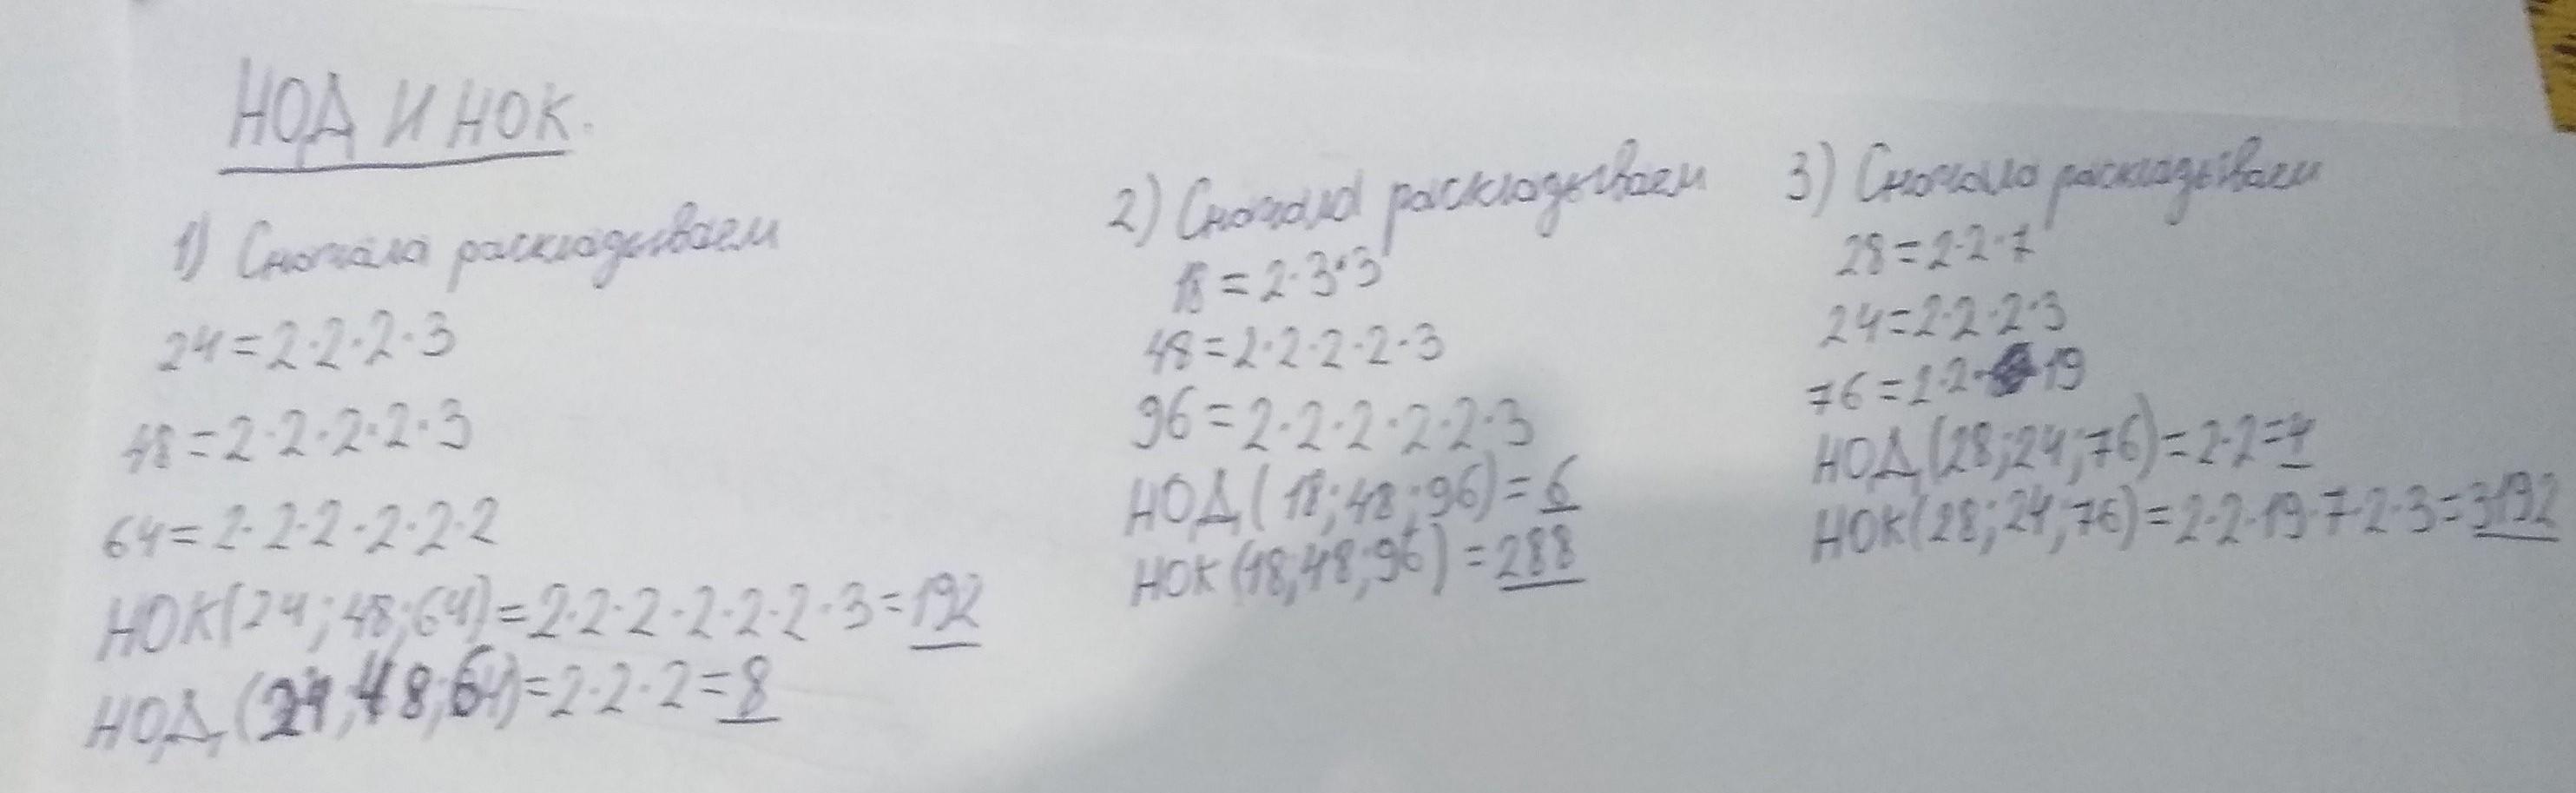 НОД И НОК.
1) Сначала раскладываем
24=2·2·2·3
48=2·2·2·2·3
64=2·2·2·2·2·2
НОК(24;48;64)=2·2·2·2·2·2·3=192
НОД(24;48;64)=2·2·2=8
2) Сначала раскладываем
18=2·3·3
48=2·2·2·2·3
96=2·2·2·2·2·3
НОД(18;48;96)=6
НОК(18;48;96)=288
3) Сначала раскладываем
28=2·2·7
24=2·2·2·3
76=2·2·19
НОД(28;24;76)=2·2=4
НОК(28;24;76)=2·2·19·7·2·3=3192